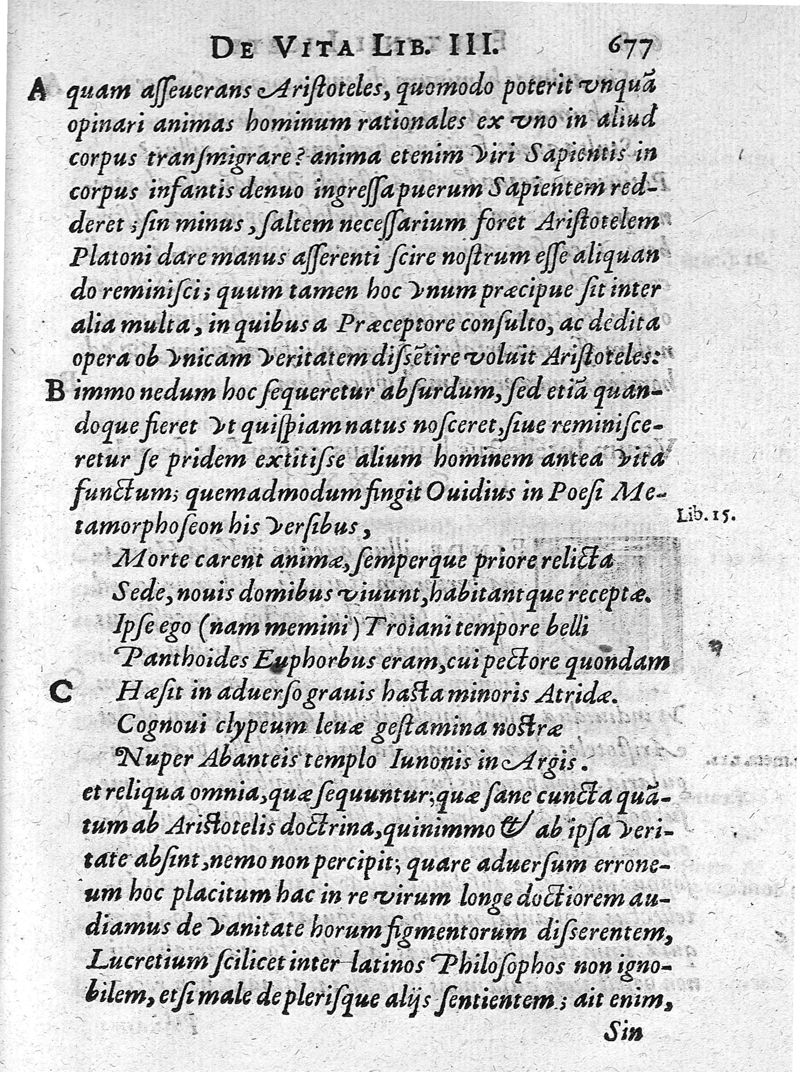 DE VITA LIB. III. 677
A quam aſſeuerans Ariſtoteles, quomodo poterit vnquā
opinari animas hominum rationales ex vno in aliud
corpus tranſmigrare? anima etenim viri Sapientis in
corpus infantis denuo ingreſſa puerum Sapientem red-
deret; ſin minus, ſaltem neceſſarium foret Ariſtotelem
Platoni dare manus aſſerenti ſcire noſtrum eſſe aliquan
do reminiſci; quum tamen hoc vnum præcipue ſit inter
alia multa, in quibus a Præceptore conſulto, ac dedita
opera ob vnicam veritatem diſſētire voluit Ariſtoteles:
B immo nedum hoc ſequeretur abſurdum, ſed etiā quan-
doque fieret vt quiſpiam natus noſceret, ſiue reminiſce-
retur ſe pridem extitiſſe alium hominem antea vita
functum; quemadmodum fingit Ouidius in Poeſi Me-
tamorphoſeon his verſibus,
Lib. 15.
Morte carent animæ, ſemperque priore relicta
Sede, nouis domibus viuunt, habitantque receptæ.
Ipſe ego (nam memini) Troiani tempore belli
Panthoides Euphorbus eram, cui pectore quondam
C Hæſit in aduerſo grauis haſta minoris Atridæ.
Cognoui clypeum leuæ geſtamina noſtræ
Nuper Abanteis templo Iunonis in Argis.
et reliqua omnia, quæ ſequuntur; quæ ſane cuncta quā-
tum ab Ariſtotelis doctrina, quinimmo & ab ipſa veri-
tate abſint, nemo non percipit; quare aduerſum errone-
um hoc placitum hac in re virum longe doctiorem au-
diamus de vanitate horum figmentorum diſſerentem,
Lucretium ſcilicet inter latinos Philoſophos non igno-
bilem, etſi male de pleriſque alijs ſentientem; ait enim,
Sin